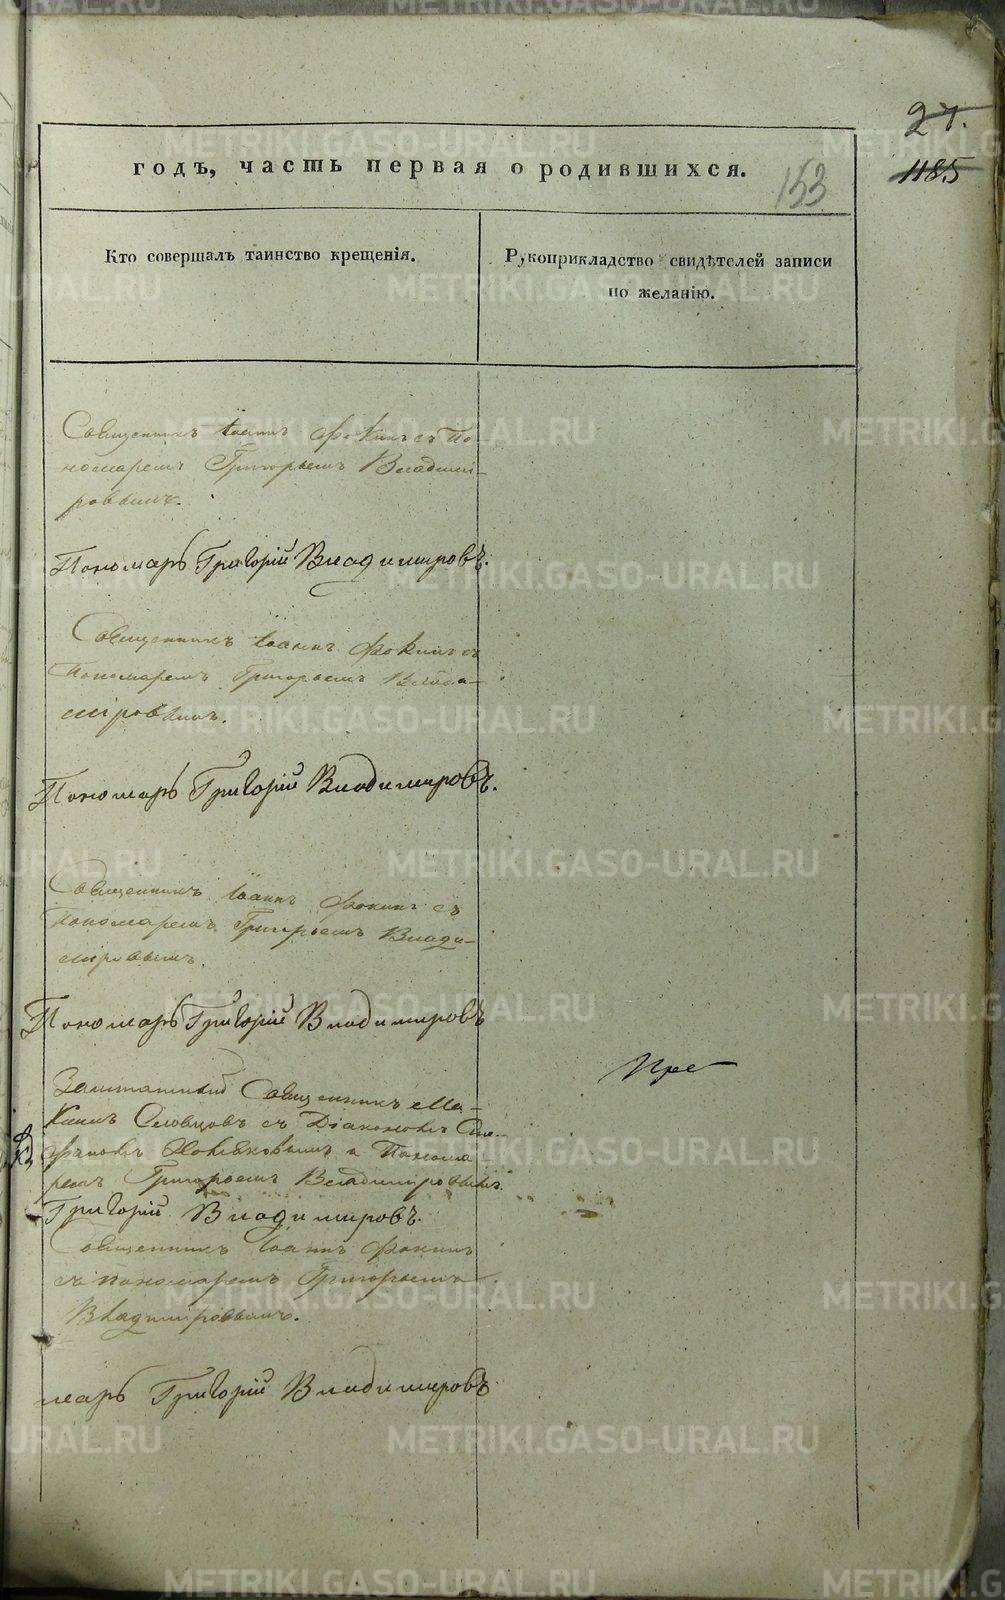 27.
1185
153
годъ, часть первая о родившихся.
Кто совершалъ таинство крещенія.
Рукоприкладство свидѣтелей записи
по желанію.
Священникъ Іоаннъ Фокинъ съ По
номаремъ Григорьемъ Владими-
ровымъ.
Пономарь Григорій Владимировъ.
Священникъ Іоаннъ Фокинъ съ
Пономаремъ Григорьемъ Влади-
міровымъ.
Пономарь Григорій Владимировъ.
Священникъ Іоаннъ Фокинъ съ
Пономаремъ Григорьемъ Влади-
мировымъ.
Пономарь Григорій Владимировъ
Заштатный Священникъ
Словцовъ съ Діакономъ Сте-
фаномъ и Понома
ремъ Григорьемъ Владимировымъ.
Григорій Владимировъ.
Священникъ Іоаннъ Фокинъ
съ пономаремъ Григорьемъ
Владиміровымъ.
марь Григорій Владимировъ
METRIKI.GASO-URAL.RU